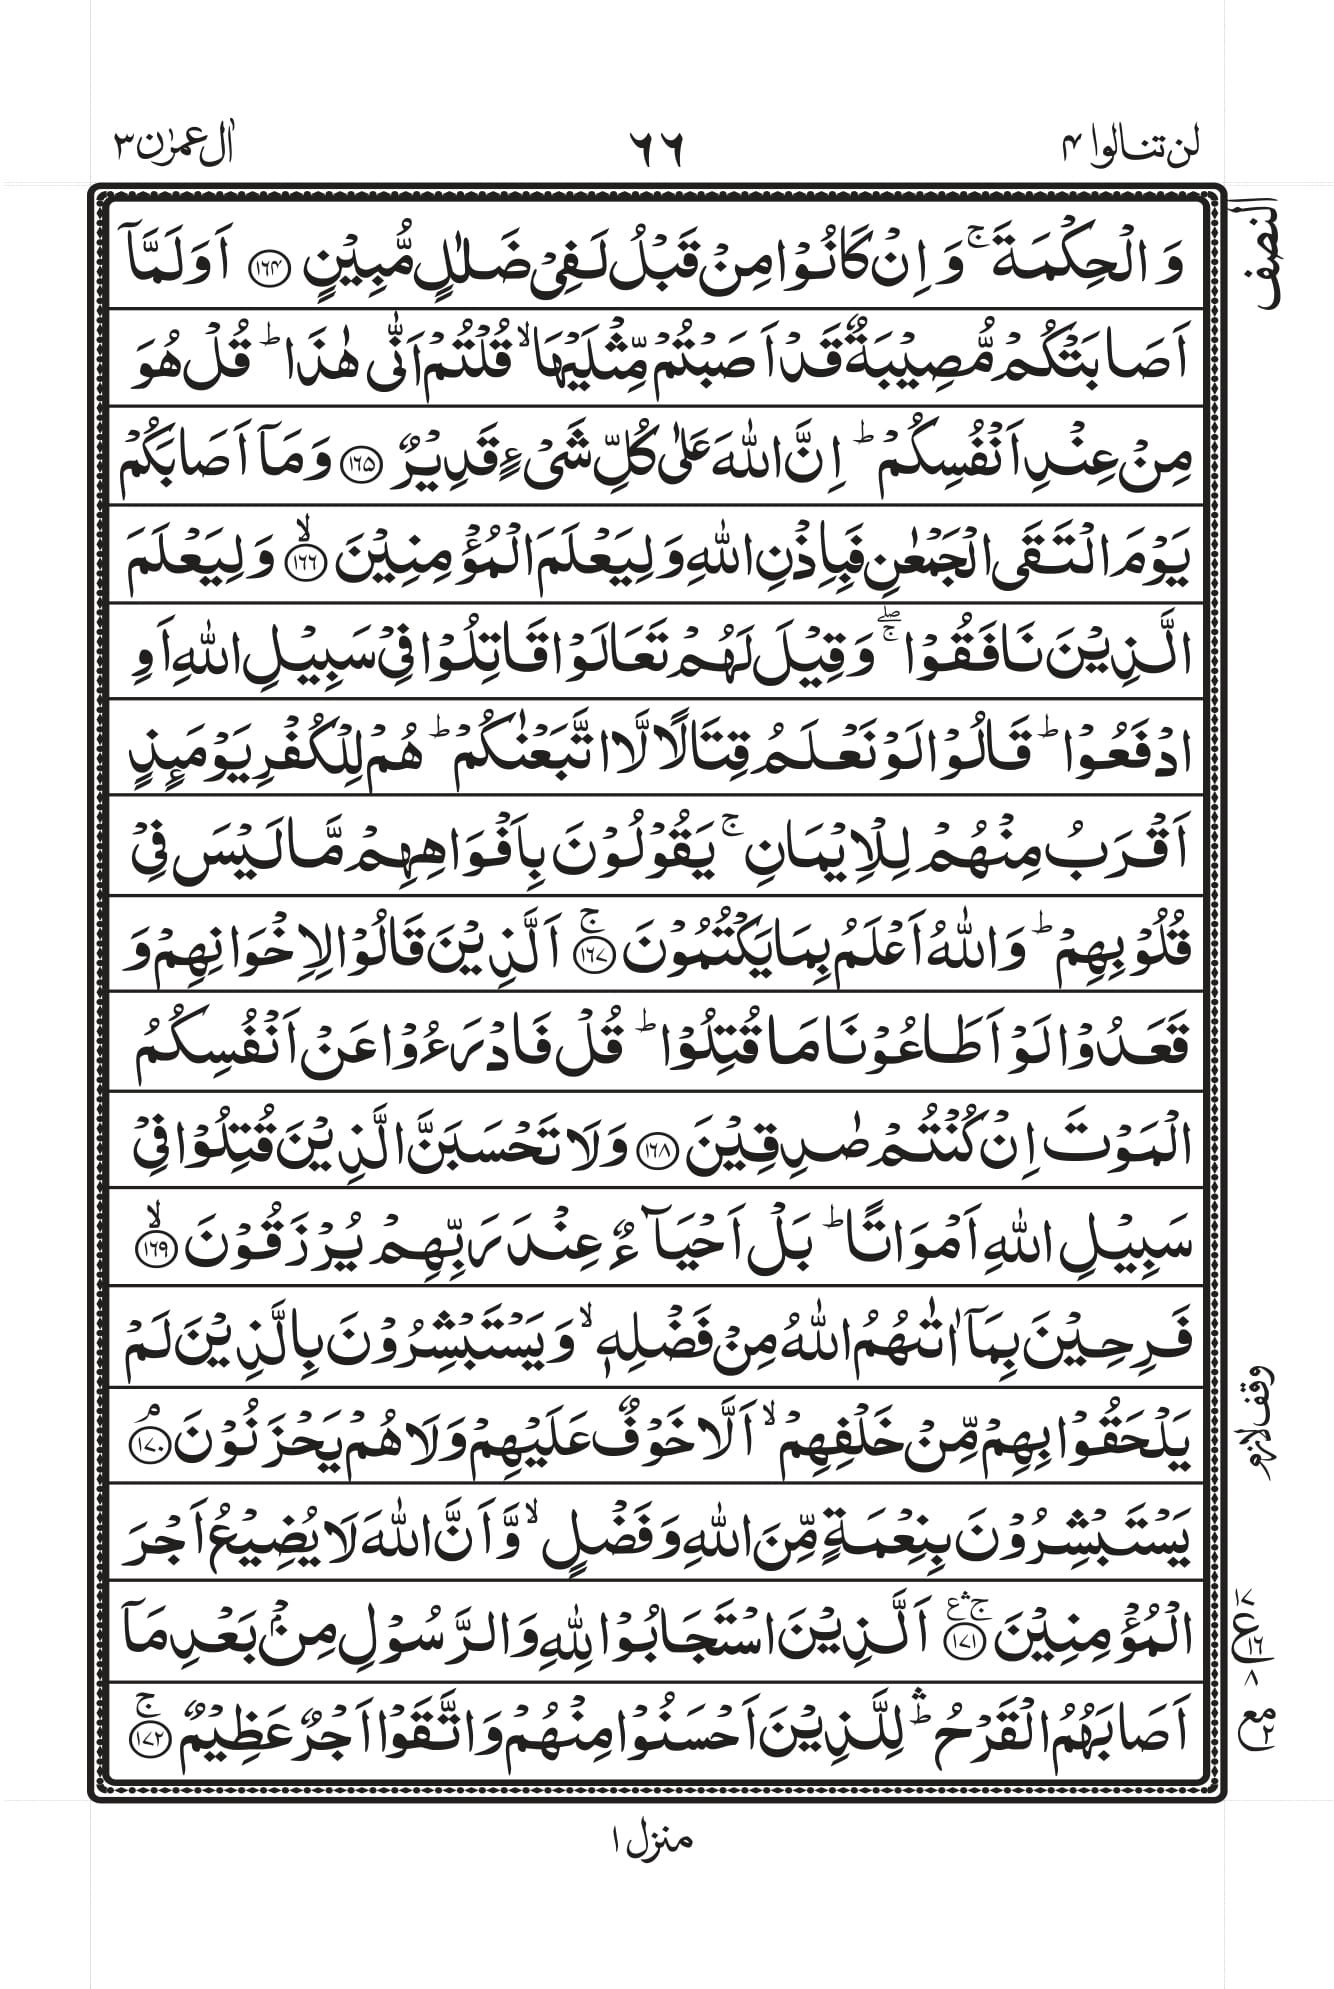 لن تنالوا ۴
٦٦
اٰل عمرٰن ۳
النصف
وَالۡحِكۡمَةَ ۚ وَاِنۡ كَانُوۡا مِنۡ قَبۡلُ لَفِىۡ ضَلٰلٍ مُّبِيۡنٍ ﴿۱۶۴﴾ اَوَلَمَّاۤ
اَصَابَتۡكُمۡ مُّصِيۡبَةٌ قَدۡ اَصَبۡتُمۡ مِّثۡلَيۡهَا ۙ قُلۡتُمۡ اَنّٰى هٰذَا ؕ قُلۡ هُوَ
مِنۡ عِنۡدِ اَنۡفُسِكُمۡ ؕ اِنَّ اللّٰهَ عَلٰى كُلِّ شَىۡءٍ قَدِيۡرٌ ﴿۱۶۵﴾ وَمَاۤ اَصَابَكُمۡ
يَوۡمَ الۡتَقَى الۡجَمۡعٰنِ فَبِاِذۡنِ اللّٰهِ وَلِيَعۡلَمَ الۡمُؤۡمِنِيۡنَ ۙ﴿۱۶۶﴾ وَلِيَعۡلَمَ
الَّذِيۡنَ نَافَقُوۡا ۖۚ وَقِيۡلَ لَهُمۡ تَعَالَوۡا قَاتِلُوۡا فِىۡ سَبِيۡلِ اللّٰهِ اَوِ
ادۡفَعُوۡا ؕ قَالُوۡا لَوۡ نَعۡلَمُ قِتَالًا لَّا اتَّبَعۡنٰكُمۡ ؕ هُمۡ لِلۡكُفۡرِ يَوۡمَٮِٕذٍ
اَقۡرَبُ مِنۡهُمۡ لِلۡاِيۡمَانِ ۚ يَقُوۡلُوۡنَ بِاَفۡوَاهِهِمۡ مَّا لَيۡسَ فِىۡ
قُلُوۡبِهِمۡ ؕ وَاللّٰهُ اَعۡلَمُ بِمَا يَكۡتُمُوۡنَ ۚ﴿۱۶۷﴾ اَلَّذِيۡنَ قَالُوۡا لِاِخۡوَانِهِمۡ وَ
قَعَدُوۡا لَوۡ اَطَاعُوۡنَا مَا قُتِلُوۡا ؕ قُلۡ فَادۡرَءُوۡا عَنۡ اَنۡفُسِكُمُ
الۡمَوۡتَ اِنۡ كُنۡتُمۡ صٰدِقِيۡنَ ﴿۱۶۸﴾ وَلَا تَحۡسَبَنَّ الَّذِيۡنَ قُتِلُوۡا فِىۡ
سَبِيۡلِ اللّٰهِ اَمۡوَاتًا ؕ بَلۡ اَحۡيَآءٌ عِنۡدَ رَبِّهِمۡ يُرۡزَقُوۡنَ ۙ﴿۱۶۹﴾
فَرِحِيۡنَ بِمَاۤ اٰتٰٮهُمُ اللّٰهُ مِنۡ فَضۡلِهٖ ۙ وَيَسۡتَبۡشِرُوۡنَ بِالَّذِيۡنَ لَمۡ
يَلۡحَقُوۡا بِهِمۡ مِّنۡ خَلۡفِهِمۡ ۙ اَلَّا خَوۡفٌ عَلَيۡهِمۡ وَلَا هُمۡ يَحۡزَنُوۡنَ ۘ﴿۱۷۰﴾
وقف لازم
يَسۡتَبۡشِرُوۡنَ بِنِعۡمَةٍ مِّنَ اللّٰهِ وَفَضۡلٍ ۙ وَّاَنَّ اللّٰهَ لَا يُضِيۡعُ اَجۡرَ
الۡمُؤۡمِنِيۡنَ ۚ ۛ ع ﴿۱۷۱﴾ اَلَّذِيۡنَ اسۡتَجَابُوۡا لِلّٰهِ وَالرَّسُوۡلِ مِنۡۢ بَعۡدِ مَاۤ
۱۷
ع
۱۶
۸
اَصَابَهُمُ الۡقَرۡحُ ؕ ۛ لِلَّذِيۡنَ اَحۡسَنُوۡا مِنۡهُمۡ وَاتَّقَوۡا اَجۡرٌ عَظِيۡمٌ ۚ﴿۱۷۲﴾
مع ۲
منزل ۱